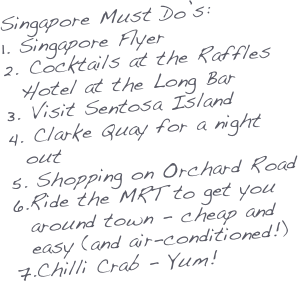 Singapore Must Do's:
1. Singapore Flyer
2. Cocktails at the Raffles
Hotel at the Long Bar
3. Visit Sentosa Island
4. Clarke Quay for a night
out
5. Shopping on Orchard Road
6.Ride the MRT to get you
around town - cheap and
easy (and air-conditioned!)
7.Chilli Crab - Yum!